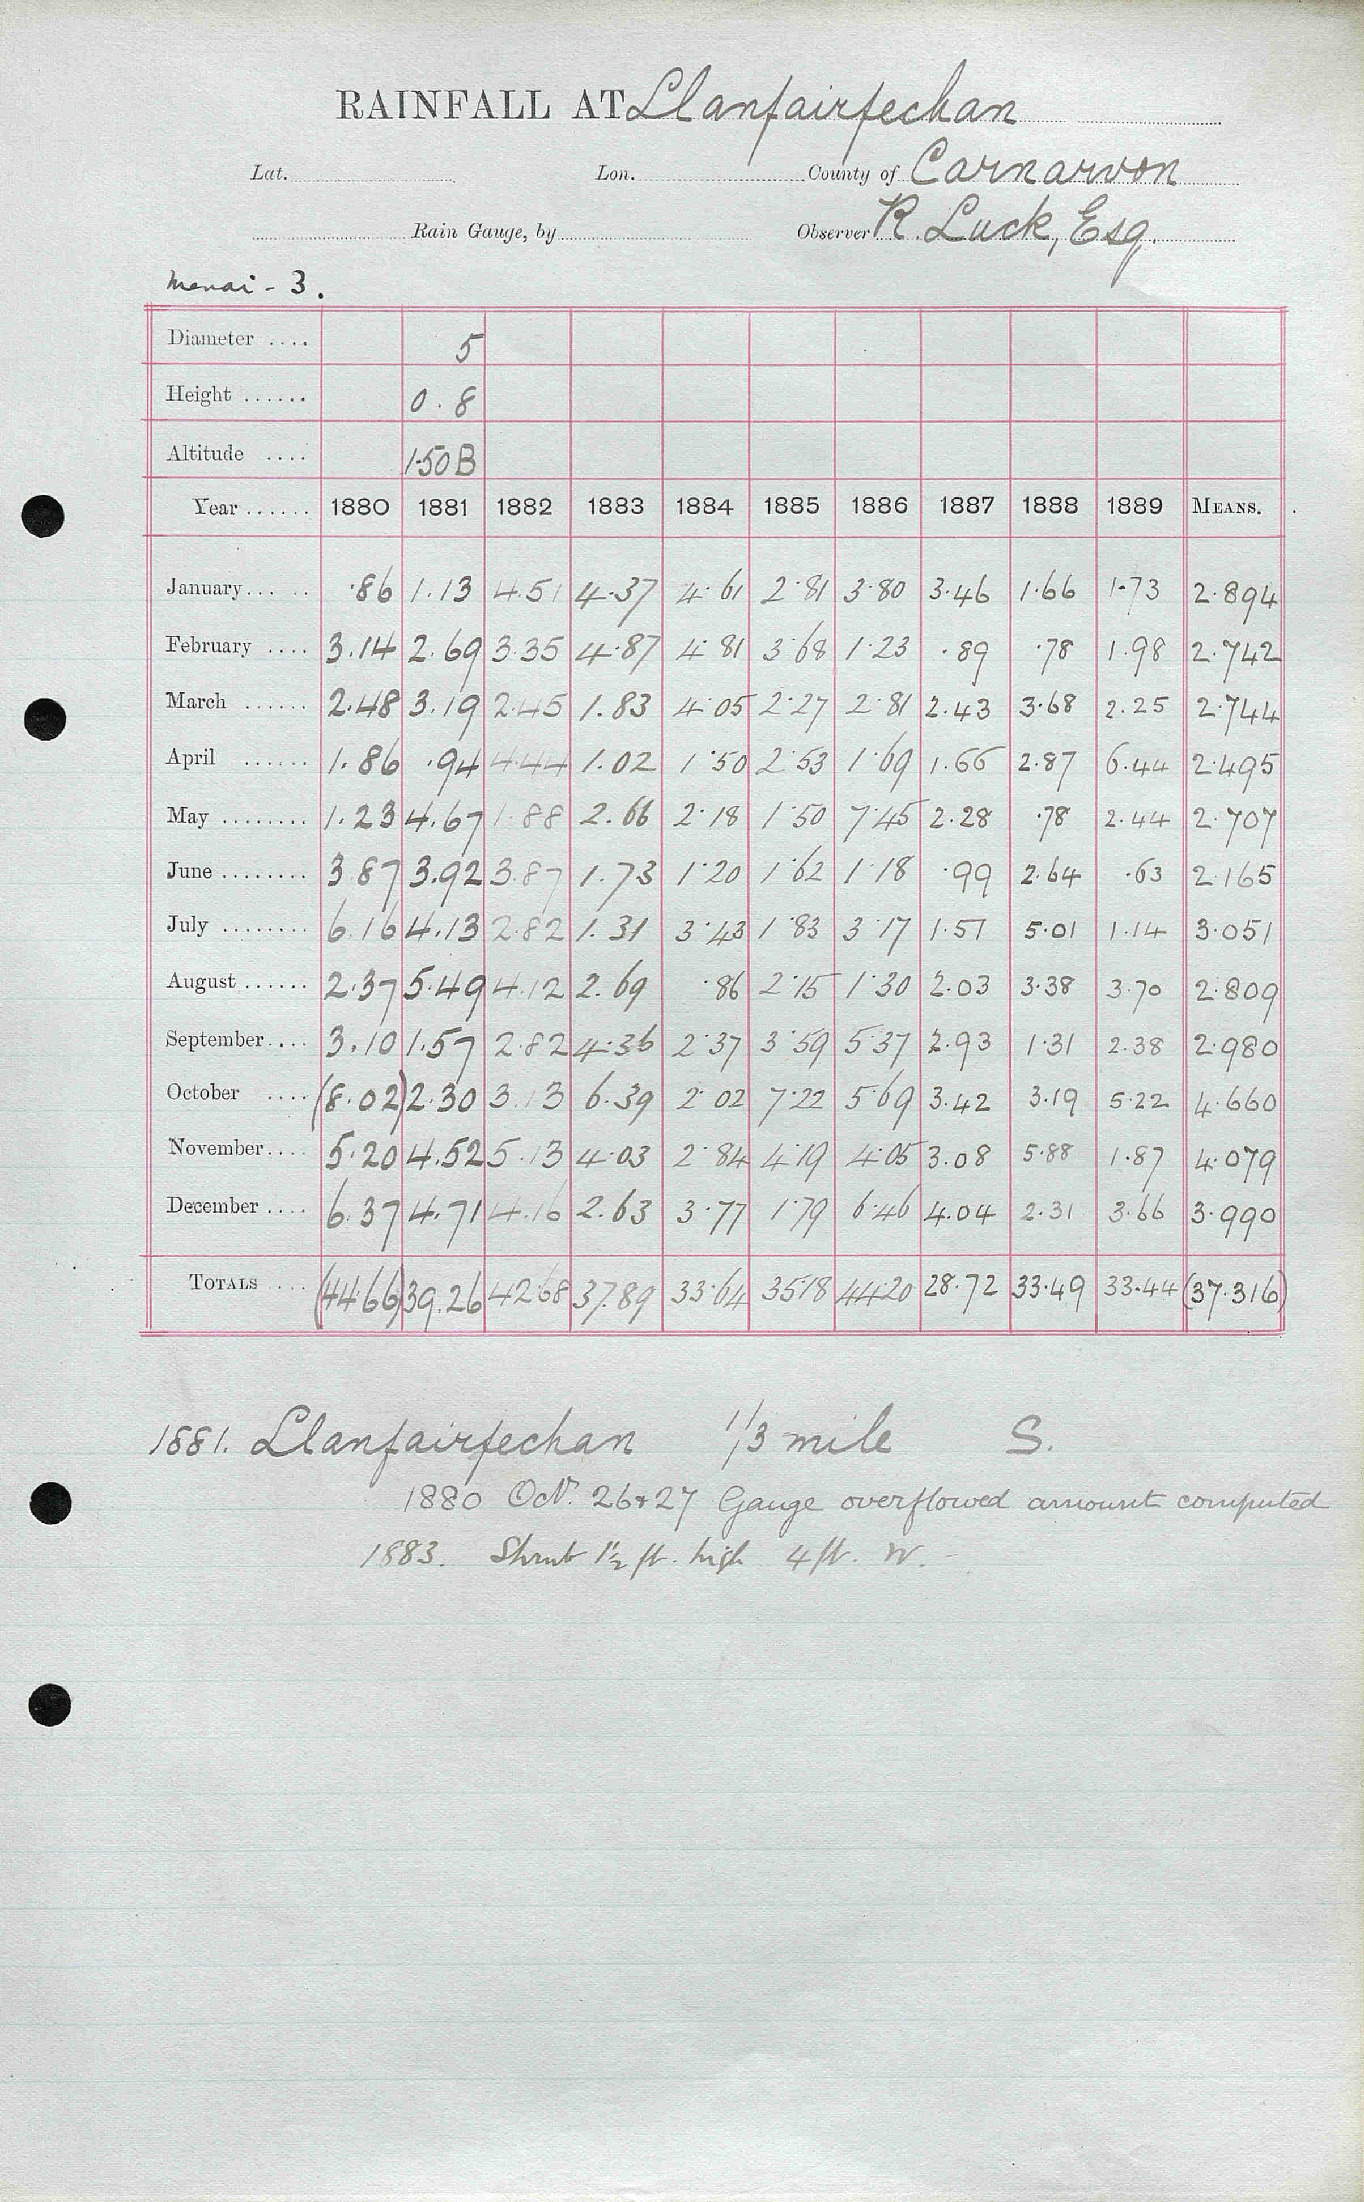 RAINFALL AT Llanfairfechan
Lat. Lon. County of Carnarvon
Rain Gauge, by Observer R. Luck, Esq.
Menai - 3.
Diameter .... 5
Height ...... 0.8
Altitude .... 150 B
Year ...... 1880 1881 1882 1883 1884 1885 1886 1887 1888 1889 MEANS.
January...... .86 1.13 4.51 4.37 4.61 2.81 3.80 3.46 1.66 1.73 2.894
February .... 3.14 2.69 3.35 4.87 4.81 3.68 1.23 .89 .78 1.98 2.742
March ...... 2.48 3.19 2.45 1.83 4.05 2.27 2.81 2.43 3.68 2.25 2.744
April ...... 1.86 .94 4.44 1.02 1.50 2.53 1.69 1.66 2.87 6.44 2.495
May ........ 1.23 4.67 1.88 2.66 2.18 1.50 7.45 2.28 .78 2.44 2.707
June ........ 3.87 3.92 3.87 1.73 1.20 1.62 1.18 .99 2.64 .63 2.165
July ........ 6.16 4.13 2.82 1.31 3.43 1.83 3.17 1.51 5.01 1.14 3.051
August ...... 2.37 5.49 4.12 2.69 .86 2.15 1.30 2.03 3.38 3.70 2.809
September.... 3.10 1.57 2.82 4.36 2.37 3.59 5.37 2.93 1.31 2.38 2.980
October .... (8.02) 2.30 3.13 6.39 2.02 7.22 5.69 3.42 3.19 5.22 4.660
November.... 5.20 4.52 5.13 4.03 2.84 4.19 4.05 3.08 5.88 1.87 4.079
December .... 6.37 4.71 4.16 2.63 3.77 1.79 6.46 4.04 2.31 3.66 3.990
TOTALS .... (44.66) 39.26 42.68 37.89 33.64 35.18 44.20 28.72 33.49 33.44 (37.316)
1881. Llanfairfechan 1/3 mile S.
1880 Oct. 26 & 27 Gauge overflowed amount computed
1883. Shrub 1½ ft. high 4 ft. W. -